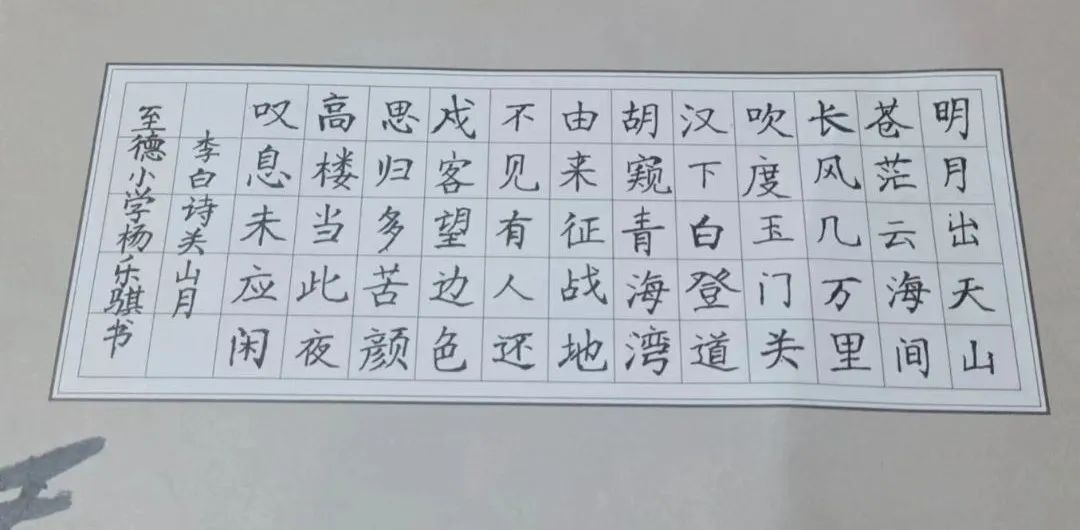 明月出天山
苍茫云海间
长风几万里
吹度玉门关
汉下白登道
胡窥青海湾
由来征战地
不见有人还
戍客望边色
思归多苦颜
高楼当此夜
叹息未应闲
李白诗关山月
至德小学杨乐骐书